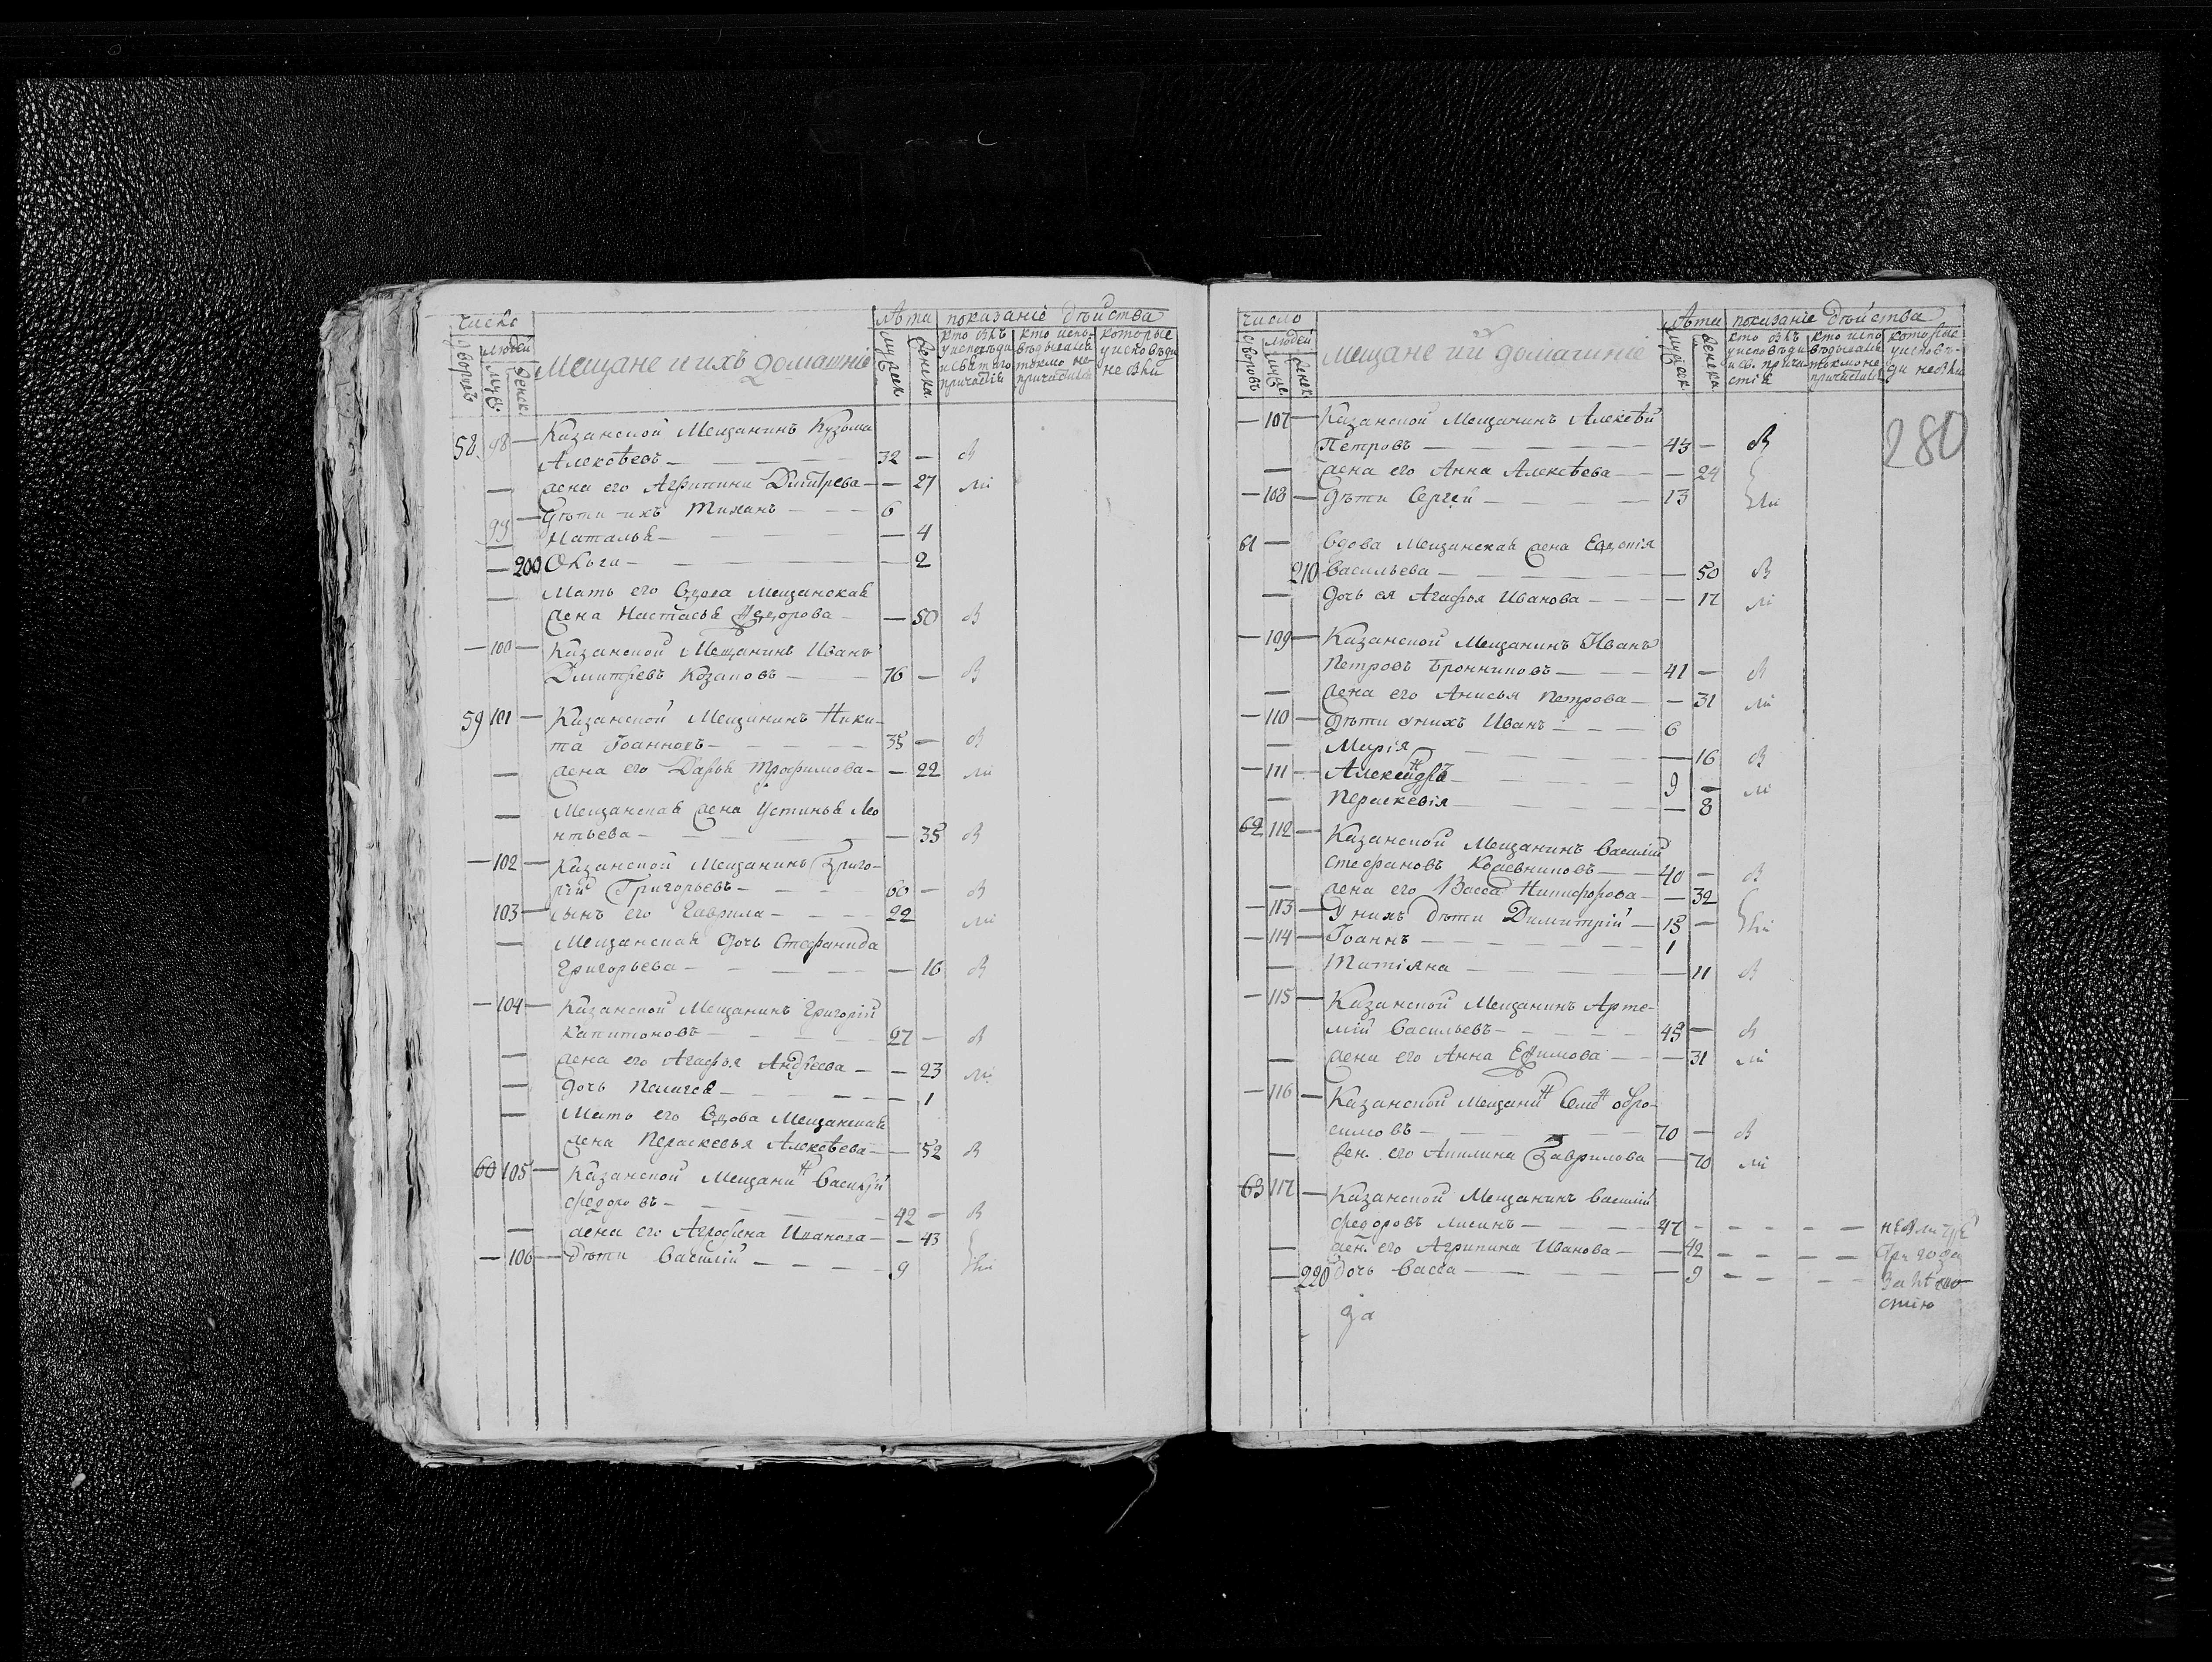 число
людей
дворовъ
муж.
женск.
Мещане и ихъ домашнiе
лѣта
мужеск.
женска.
показанiе дѣйства
кто былъ у исповѣди и святаго причастiя
кто исповѣдывался токмо не причастился
которые у исповѣди не были
58 98 — Казанской Мещанинъ Кузьма
Алексѣевъ — 32 —
— жена его Агрипина Дмитрева — — 27
99 — Дѣти ихъ — — 6
Наталья — — 4
— 200 Ольга — — 2
— Мать его вдова Мещанская
жена Настасья Федорова — — 50
— 100 — Казанской Мещанинъ Иванъ
Дмитревъ Козаковъ — 76 —
59 101 — Казанской Мещининъ Ники-
та Iоанновъ — 35 —
— жена его Дарья Трофимова — — 22
— Мещанская жена Устинья Лео
нтьева — — 35
— 102 — Казанской Мещанинъ Григо-
рей Григорьевъ — 60 —
103 — сынъ его Гаврила — 22
— Мещанская дочь Стефанида
Григорьева — — 16
— 104 — Казанской Мещанинъ Григорiй
Капитоновъ — 27 —
— жена его Агафья Андреева — — 23
— дочь Пелагея — — 1
— Мать его вдова Мещанская
жена Параскевья Алексѣева — — 52
60 105 — Казанской Мещани н Василiй
Федоровъ — 42 —
— жена его Агрофена Иванова — — 43
— 106 — дѣти Василiй — 9
число
людей
дворовъ
муже.
женск.
мещане ий домашнiе
лѣта
мужеск.
женска.
показанiе дѣйства
кто былъ у исповѣди и св. причастiя
кто исповѣдывался токмо не причастился
которые у исповѣди не были
280
— 107 — Казанской Мещанинъ Алексѣй
Петровъ — 43 —
— жена его Анна Алексѣева — — 24
— 108 — Дѣти Сергей — 13
61 — вдова Мещанская жена Евдокiя
210 Васильева — — 50
— дочь ея Агафья Иванова — — 17
— 109 — Казанской Мещанинъ Иванъ
Петровъ Бронниковъ — 41 —
— жена его Анисья Петрова — — 31
— 110 — Дѣти у нихъ Иванъ — 6
— Марiя — — 16
— 111 — Александръ — 9 —
— Пераскевiя — — 8
62 112 — Казанской Мещанинъ Василiй
Стефановъ Кожевниковъ — 40 —
— жена его Васса Никифорова — — 32
— 113 — У нихъ дѣти Димитрiй — 15 —
— 114 — Iоаннъ — 1
— Татiяна — — 11
— 115 — Казанской Мещанинъ Арте-
мiй Васильевъ — 45 —
— жена его Анна Ефимова — — 31
— 116 — Казанской Мещани н Семе н Ефро-
симовъ — 70 —
— жен. его Акилина Гаврилова — 70
63 117 — Казанской Мещанинъ Василiй
Федоровъ Лисинъ — 47 —
— жен. его Агрипина Иванова — — 42
— 220 дочь Васса — — 9
три года
стiю